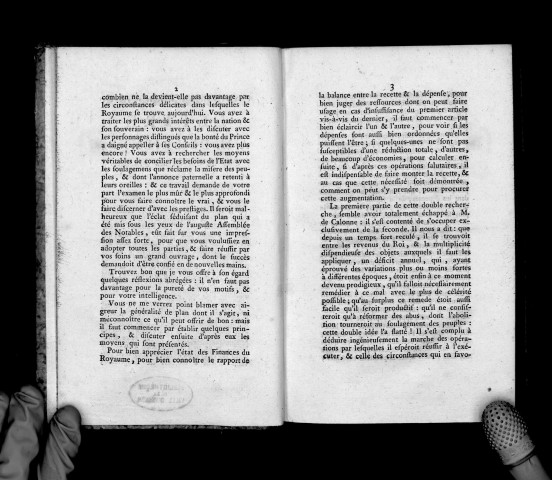 2
combien ne la devient-elle pas davantage par
les circonstances délicates dans lesquelles le
Royaume se trouve aujourd'hui. Vous avez à
traiter les plus grands intérêts entre la nation &
son souverain : vous avez à les discuter avec
les personnages distingués que la bonté du Prince
a daigné appeller à ses Conseils : vous avez plus
encore ! Vous avez à rechercher les moyens
véritables de concilier les besoins de l'Etat avec
les soulagemens que réclame la misere des peu-
ples, & dont l'annonce paternelle a retenti à
leurs oreilles : & ce travail demande de votre
part l'examen le plus mûr & le plus approfondi
pour vous faire connoître le vrai, & vous le
faire discerner d'avec les prestiges. Il seroit mal-
heureux que l'éclat séduisant du plan qui a
été mis sous les yeux de l'auguste Assemblée
des Notables, eût fait sur vous une impres-
sion assez forte, pour que vous voulussiez en
adopter toutes les parties, & faire réussir par
vos soins un grand ouvrage, dont le succès
demandoit d'être confié en de nouvelles mains.
Trouvez bon que je vous offre à son égard
quelques réflexions abrégées : il n'en faut pas
davantage pour la pureté de vos motifs, &
pour votre intelligence.
Vous ne me verrez point blamer avec ai-
greur la généralité de plan dont il s'agit, ni
méconnoître ce qu'il peut offrir de bon : mais
il faut commencer par établir quelques prin-
cipes, & discuter ensuite d'après eux les
moyens qui sont présentés.
Pour bien apprécier l'état des Finances du
Royaume, pour bien connoître le rapport de
3
la balance entre la recette & la dépense, pour
bien juger des ressources dont on peut faire
usage en cas d'insuffisance du premier article
vis-à-vis du dernier, il faut commencer par
bien éclaircir l'un & l'autre, pour voir si les
dépenses sont aussi bien ordonnées qu'elles
puissent l'être ; si quelques-unes ne sont pas
susceptibles d'une réduction totale, d'autres,
de beaucoup d'économies, pour calculer en-
suite, si d'après ces opérations salutaires, il
est indispensable de faire monter la recette, &
au cas que cette nécessité soit démontrée,
comment on peut s'y prendre pour procurer
cette augmentation.
La premiere partie de cette double recher-
che, semble avoir totalement échappé à M.
de Calonne : il s'est contenté de s'occuper ex-
clusivement de la seconde. Il nous a dit : que
depuis un temps fort reculé, il se trouvoit
entre les revenus du Roi, & la multiplicité
dispendieuse des objets auxquels il faut les
appliquer, un déficit annuel, qui, ayant
éprouvé des variations plus ou moins fortes
à différentes époques, étoit enfin à ce moment
devenu prodigieux, qu'il falloit nécessairement
remédier à ce mal avec le plus de célérité
possible ; qu'au surplus ce remede étoit aussi
facile qu'il seroit productif : qu'il ne consis-
teroit qu'à réformer des abus, dont l'aboli-
tion tourneroit au soulagement des peuples :
cette double idée l'a flatté ! Il s'est complu à
déduire ingénieusement la marche des opéra-
tions par lesquelles il espéroit réussir à l'exé-
cuter, & celle des circonstances qui en favo-